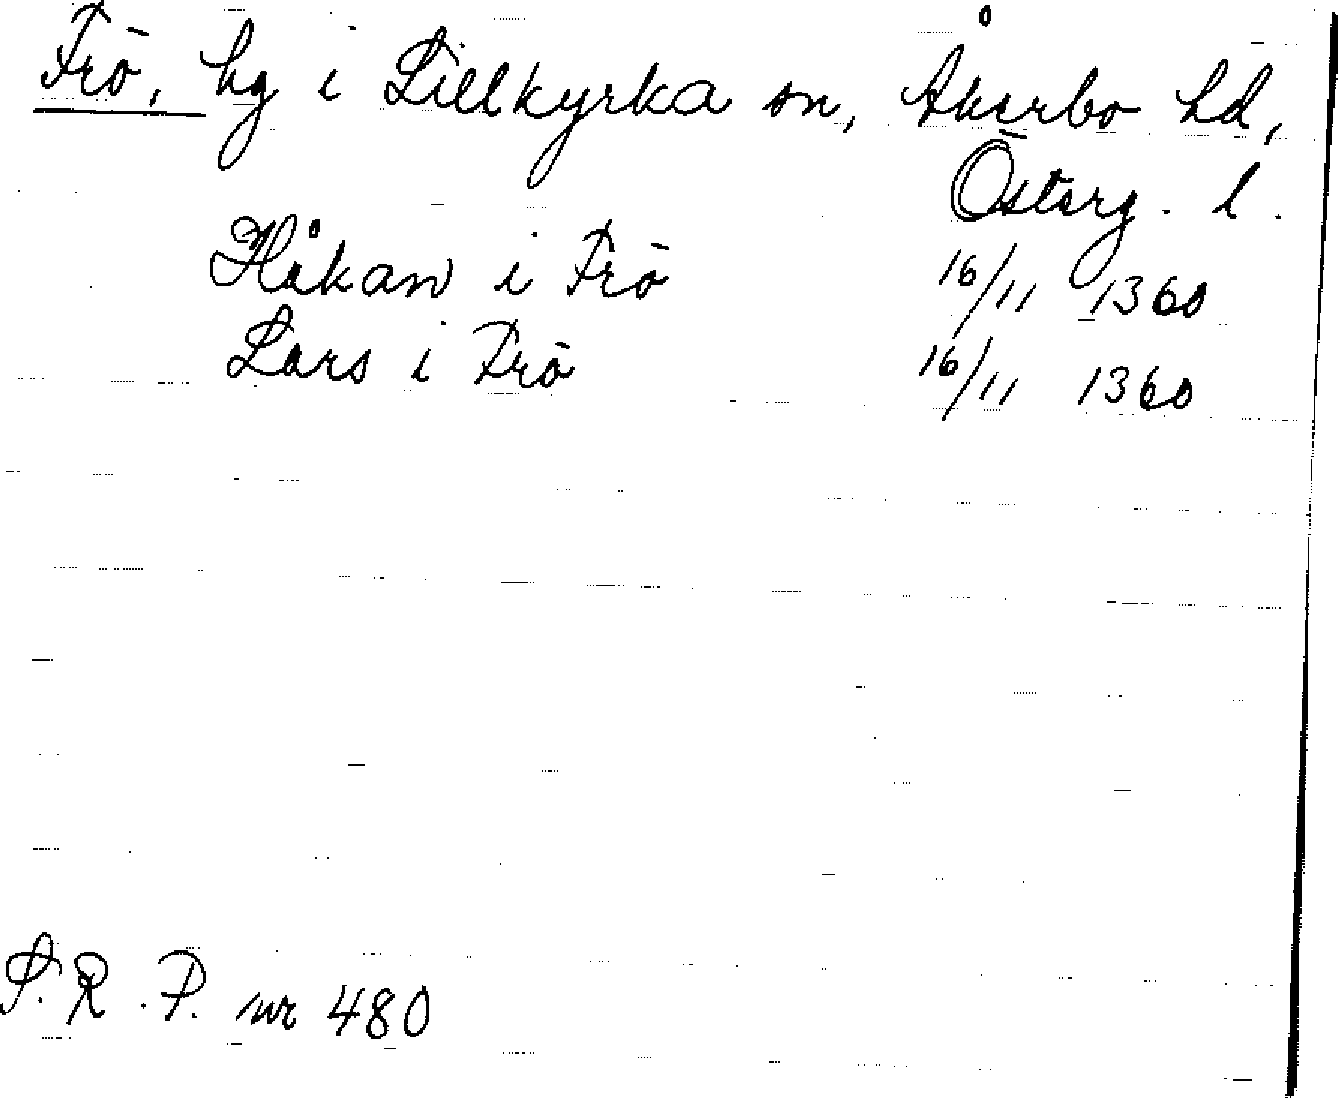 Frö, hg i Lillkyrka sn, Åkerbo hd,
Österg. l.
Håkan i Frö 16/11 1360
Lars i Frö 16/11 1360
S.R.P. nr 480